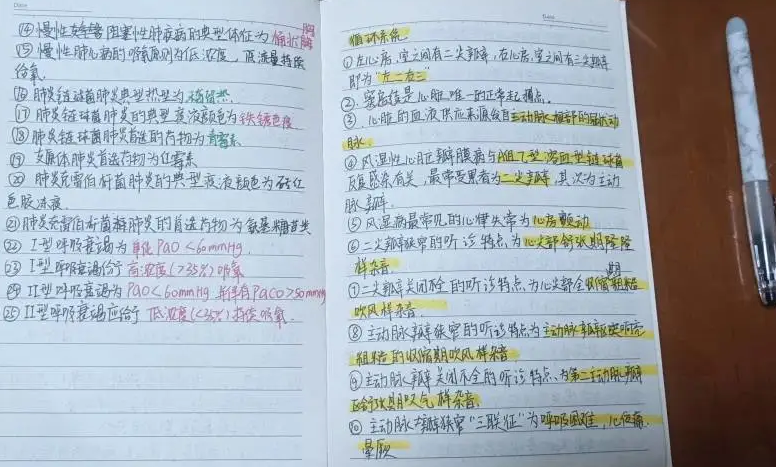 Date
⑭慢性支 阻塞性肺疾病的典型体征为桶状胸
⑮慢性肺心病的吸氧原则为低浓度,低流量持续
给氧.
⑯肺炎链球菌肺炎典型热型为稽留热.
⑰肺炎链球菌肺炎的典型痰液颜色为铁锈色痰
⑱肺炎链球菌肺炎首选的药物为青霉素
⑲支原体肺炎首选药物为红霉素
⑳肺炎克雷伯杆菌肺炎的典型痰液颜色为砖红
色胶冻痰.
㉑肺炎克雷伯杆菌肺炎的首选药物为氨基糖苷类
㉒I型呼吸衰竭为单纯PaO<60mmHg.
㉓I型呼吸衰竭给予高浓度(>35%)吸氧
㉔II型呼吸衰竭为PaO<60mmHg 并伴有PaCO>50mmHg
㉕II型呼吸衰竭应给予 低浓度(<35%)持续吸氧.
Date
循环系统.
①左心房,室之间有二尖瓣,右心房,室之间有三尖瓣
即为"左二右三"
②.窦房结是心脏唯一的正常起搏点.
③.心脏的血液供应来源自主动脉根部的冠状动
脉.
④风湿性心脏瓣膜病与A组 型 溶血型链球菌
反复感染有关,最常受累者为二尖瓣,其次为主动
脉瓣.
⑤风湿病最常见的心律失常为心房颤动
⑥二尖瓣狭窄的听诊特点,为心尖部舒张期隆隆
样杂音.
⑦二尖瓣关闭不全的听诊特点,为心尖部全收缩期粗糙
吹风样杂音.
⑧主动脉瓣狭窄的听诊特点为主动脉瓣区响亮
粗糙的收缩期吹风样杂音
⑨主动脉瓣关闭不全的听诊特点,为第二主动脉瓣
区舒张期叹气样杂音.
⑩主动脉瓣狭窄"三联征"为呼吸困难,心绞痛.
晕厥